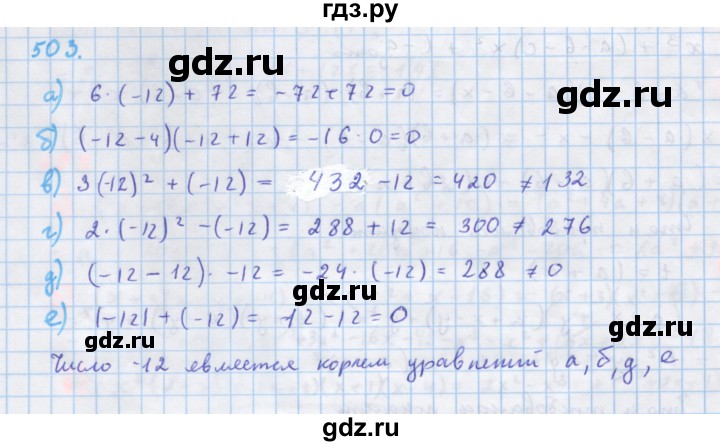 гдз.ру
503.
а) 6·(-12) + 72 = -72+72=0
б) (-12-4)(-12+12) = -16·0=0
в) 3(-12)² + (-12) = 432 -12 = 420 ≠132
г) 2·(-12)² -(-12) = 288 + 12 = 300 ≠ 276
д) (-12-12)· -12 = -24·(-12) = 288 ≠0
е) |-12| + (-12) = 12-12=0
гдз.ру
гдз.ру
Число -12 является корнем уравнений а, б, д, е
гдз.ру